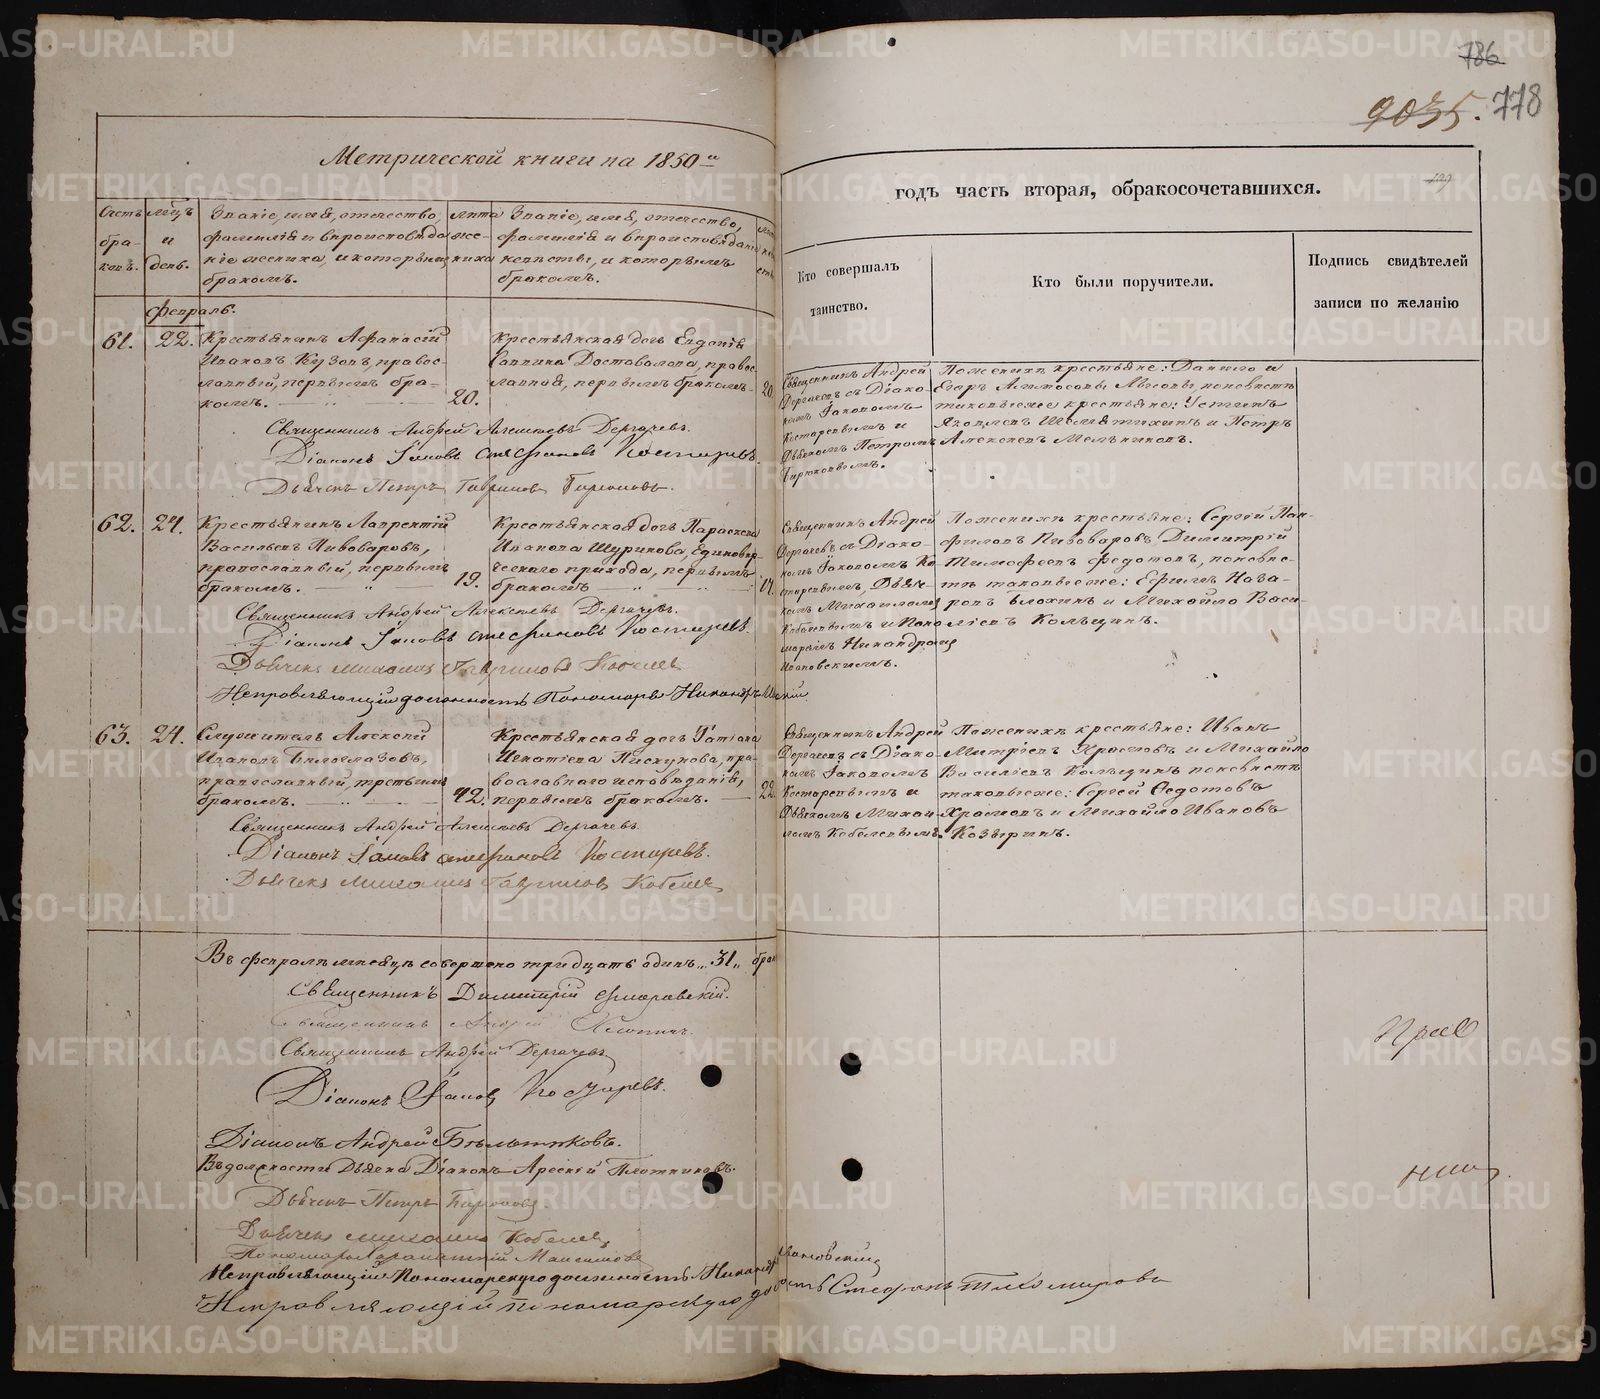 786
2035. 778
Метрической книги на 1850й
годъ часть вторая, обракосочетавшихся.
Счетъ
бра-
ковъ.
Мцъ
и
день.
Званіе, имя, отечество,
фамилія и вѣроисповѣда-
ніе жениха, и которымъ
бракомъ.
Лѣта
же-
ниха
Званіе, имя, отечество,
фамилія и вѣроисповѣданіе
невѣсты, и которымъ
бракомъ.
Кто совершалъ
таинство.
Кто были поручители.
Подпись свидѣтелей
записи по желанію
Февраль.
61. 22.
Крестьянинъ Афанасій
Ивановъ Кузовъ, правос-
лавный, первымъ бра-
комъ.
20.
Крестьянская дочь Евдокія
Саввина Достовалова, правос-
лавная, первымъ бракомъ
20.
Священникъ Андрей
Дергачевъ съ Діако-
номъ Іаковомъ
Костаревымъ и
Дьячкомъ Петромъ
Бирюковымъ.
По женихѣ крестьяне: Данило и
Егоръ, по невѣстѣ
таковые же крестьяне: Устинъ
и Петръ
Алексѣевъ Мельниковъ.
Священникъ Андрей Алексѣевъ Дергачевъ.
Діаконъ Іаковъ Стефановъ Костаревъ.
Дьячекъ Петръ Гавриловъ Бирюковъ.
62. 24.
Крестьянинъ Лаврентій
Васильевъ Пивоваровъ,
православный, первымъ
бракомъ.
19.
Крестьянская дочь Параскева
Иванова Шурикова, Единовѣр-
ческаго прихода, первымъ
бракомъ
Священникъ Андрей
Дергачевъ съ Діако-
номъ Іаковомъ Ко-
старевымъ, Дьяч-
комъ Михаиломъ
Кобелевымъ и Поно-
маремъ Никандромъ
Ивановскимъ.
По женихѣ крестьяне: Сергѣй Пан-
филовъ Пивоваровъ, Димитрій
Тимофеевъ Федотовъ, по невѣс-
тѣ таковые же: Ефимъ Наза-
ровъ Блохинъ и Михайло Васи-
льевъ Кольцинъ.
Священникъ Андрей Алексѣевъ Дергачевъ.
Діаконъ Іаковъ Стефановъ Костаревъ.
Дьячекъ Михаилъ Гавриловъ Кобелевъ
Исправляющій должность Пономаря Никандръ
63. 24.
Служитель Алексѣй
Ивановъ Бѣлоглазовъ,
православный, третьимъ
бракомъ.
42.
Крестьянская дочь Татіана
Игнатіева Пискунова, пра-
вославнаго исповѣданія,
первымъ бракомъ.
22.
Священникъ Андрей
Дергачевъ съ Діако-
номъ Іаковомъ
Костаревымъ и
Дьячкомъ Михаи-
ломъ Кобелевымъ.
По женихѣ крестьяне: Иванъ
Митріевъ Храмовъ и Михайло
Василіевъ Кольцинъ по невѣстѣ
таковые же: Сергѣй Федотовъ
Храмовъ и Михайло Ивановъ
Козыринъ.
Священникъ Андрей Алексѣевъ Дергачевъ.
Діаконъ Іаковъ Стефановъ Костаревъ.
Дьячекъ Михаилъ Гавриловъ Кобелевъ
Въ февралѣ мѣсяцѣ совершено тридцать одинъ „31„ бра
Священникъ Димитрій Флоровскій.
Священникъ Андрей
Священникъ Андрей Дергачевъ
Діаконъ Іаковъ Костаревъ.
Діаконъ Андрей Бѣльтиковъ.
Въ должности Дьячка Діаконъ Арсеній Плотниковъ.
Дьячекъ Петръ Бирюковъ.
Дьячекъ Михаилъ Кобелевъ
Пономарь
Исправляющій Пономарскую должность Никандръ Ивановскій
Исправляющій Пономарскую должность Стефанъ Тихомировъ
METRIKI.GASO-URAL.RU